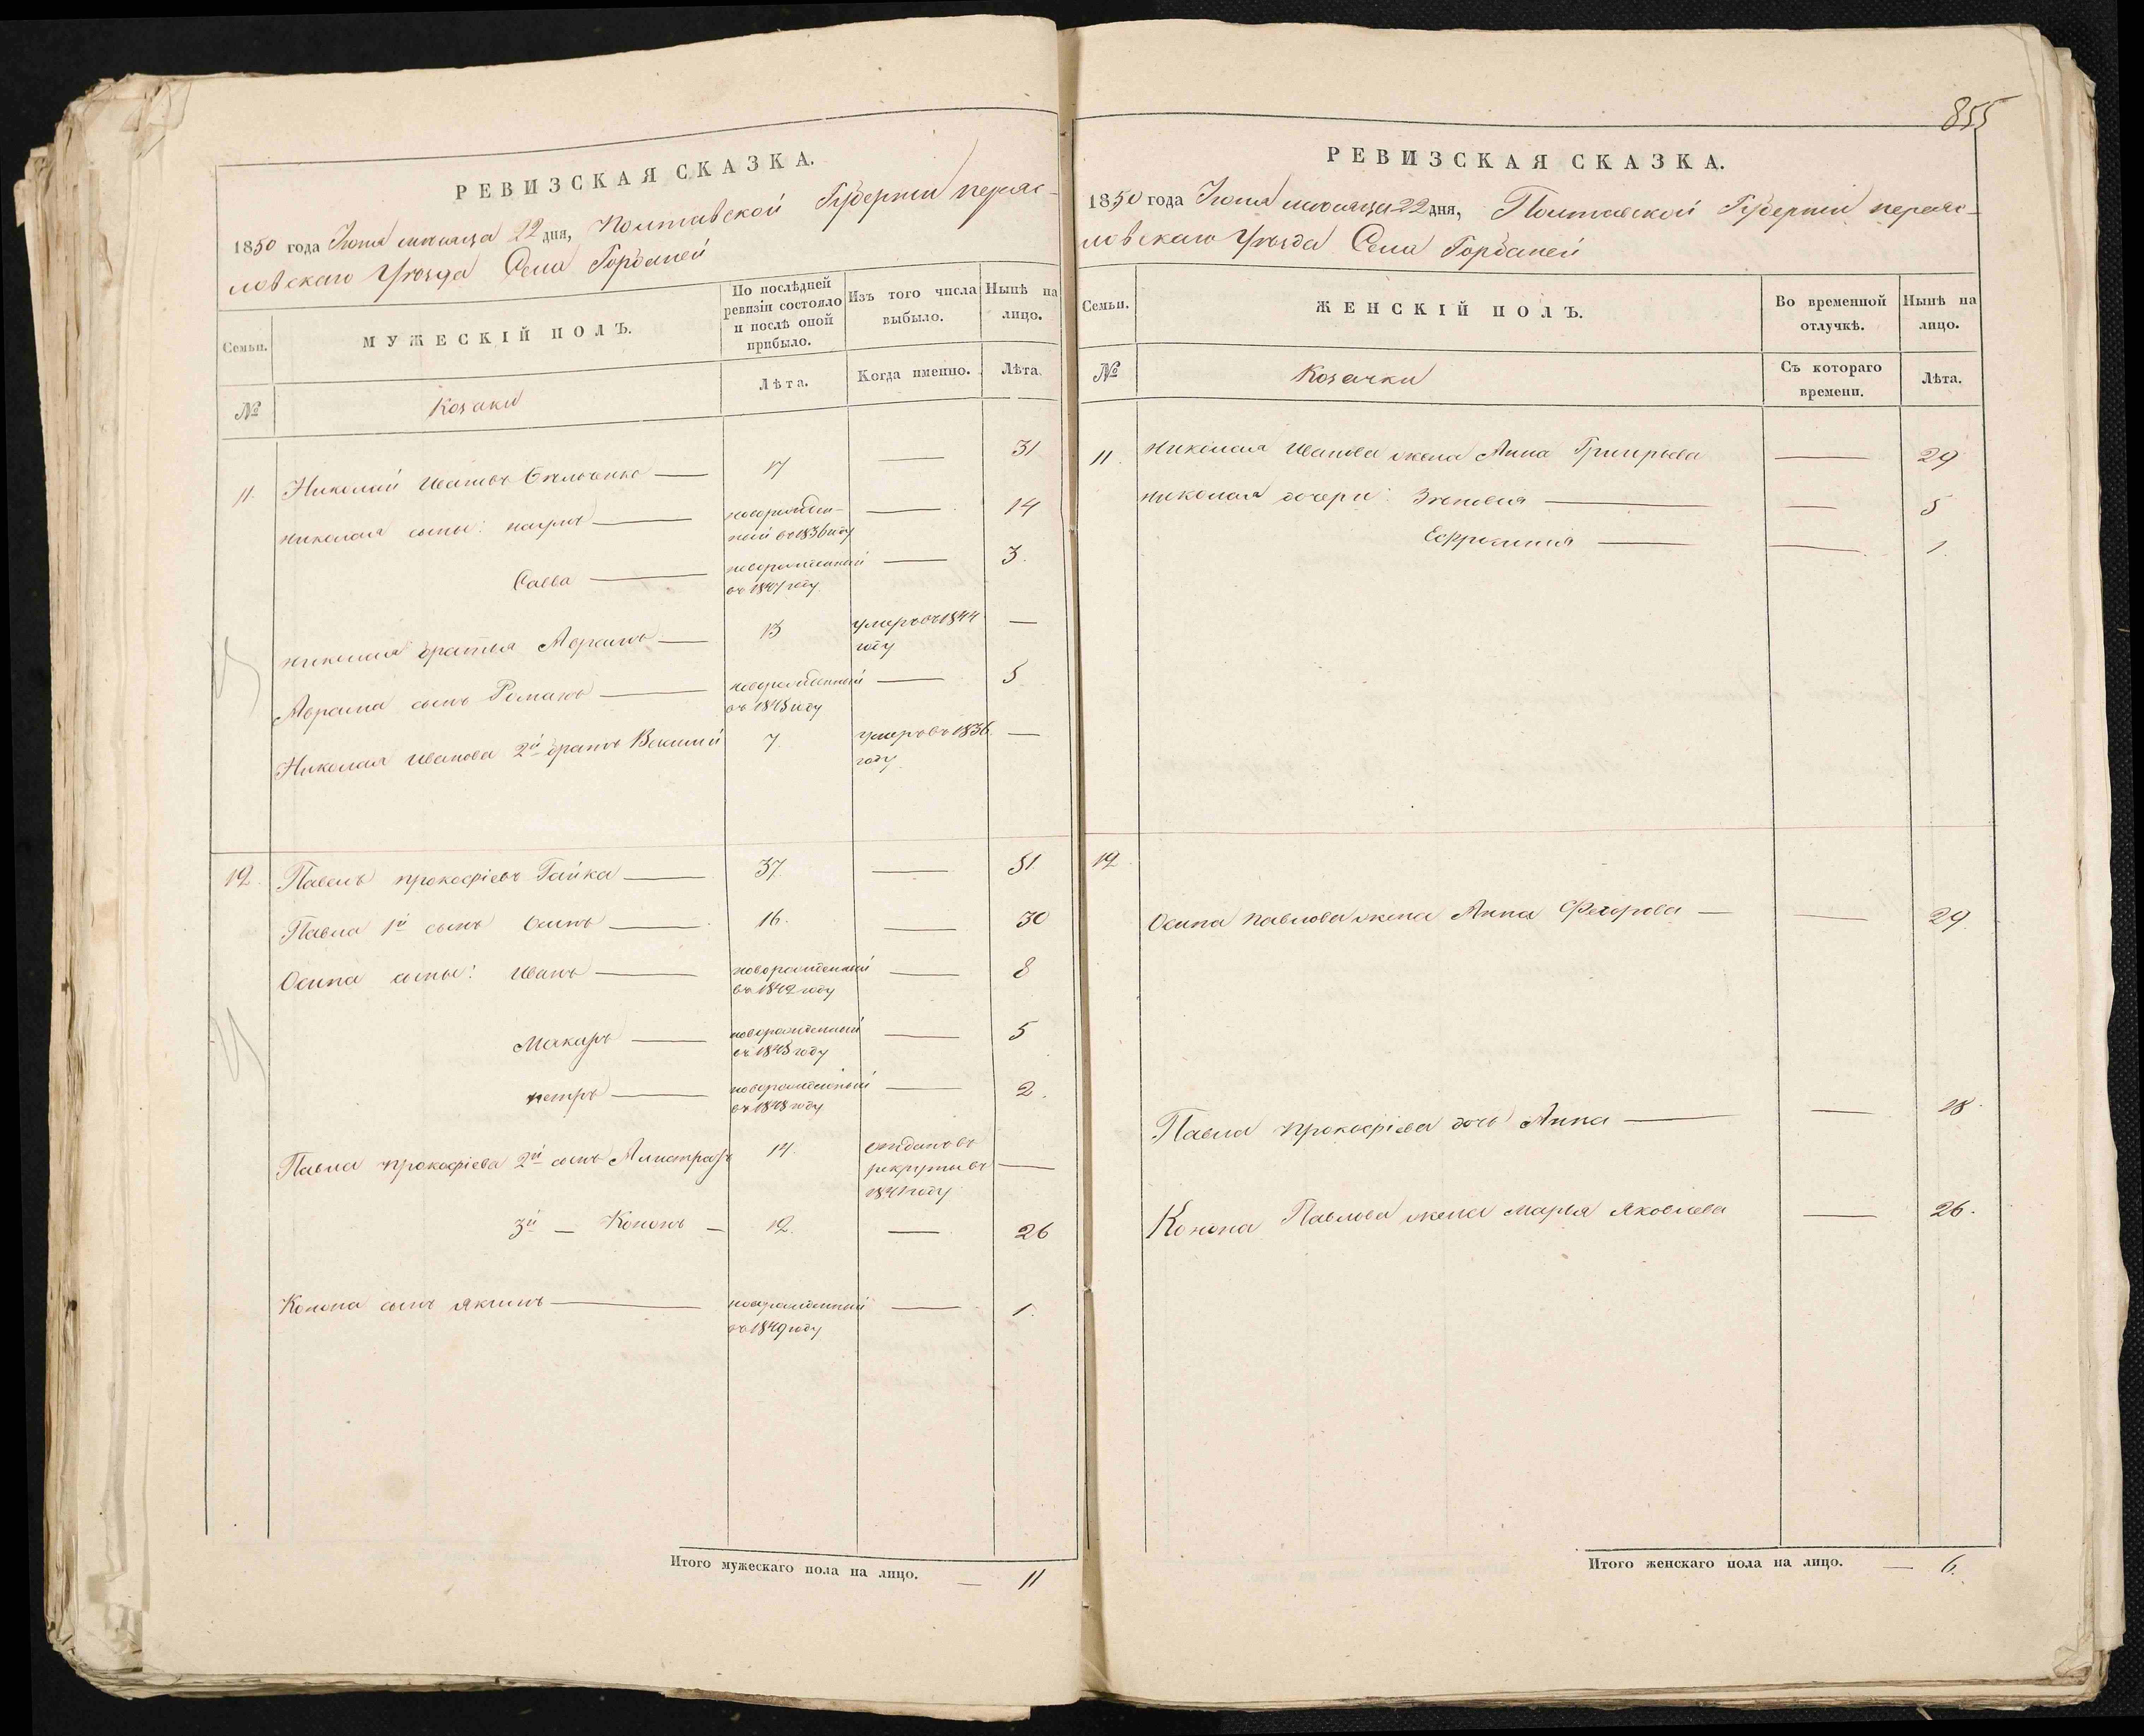 855
РЕВИЗСКАЯ СКАЗКА.
1850 года Іюня месяца 22 дня, Полтавской Губерніи переяс-
ловскаго Уѣзда Села Горбаней
Семьи.
МУЖЕСКІЙ ПОЛЪ.
По послѣдней
ревизіи состояло
и послѣ оной
прибыло.
Изъ того числа
выбыло.
Нынѣ на
лицо.
№
Козаки
Лѣта.
Когда именно.
Лѣта.
11. Николай Ивановъ — 17 — 31
Николая сыны: — новорожден- — 14
ный въ 1836 году
Савва — новорожденный — 3.
въ 1847 году
Николая братья Абрамъ — 13 умеръ въ 1844 —
году
Абрама сынъ Романъ — новорожденный — 5
въ 1845 году
Николая Иванова 2й братъ 7. умеръ въ 1836 —
году
12. Павелъ прокофіевъ Гайка — 37. — 51
Павла 1й сынъ Осипъ — 16. — 30
Осипа сыны: Иванъ — новорожденный — 8
въ 1842 году
Макаръ — новорожденный — 5
въ 1845 году
петръ — новорожденный — 2.
въ 1848 году
Павла прокофіева 2й сынъ 14. отданъ въ —
рекруты въ
1841 году
3й — Кононъ — 12. — 26
Конона сынъ Якимъ — новорожденный — 1.
въ 1849 году
Итого мужескаго пола на лицо. — 11
РЕВИЗСКАЯ СКАЗКА.
1850 года Іюня месяца 22 дня, Полтавской Губерніи переяс-
ловскаго Уѣзда Села Горбаней
Семьи.
ЖЕНСКІЙ ПОЛЪ.
Во временной
отлучкѣ.
Нынѣ на
лицо.
№
Козачки
Съ котораго
времени.
Лѣта.
11. Николая Иванова жена Анна Григорьева — 29
Николая дочери: Зѣновия — — 5
Ефросинія — — 1.
12.
Осипа Павлова жена Анна Федорова — — 29.
Павла прокофіева дочь Анна — — 18.
Конона Павлова жена Марья Яковлева — 26.
Итого женскаго пола на лицо. — 6.